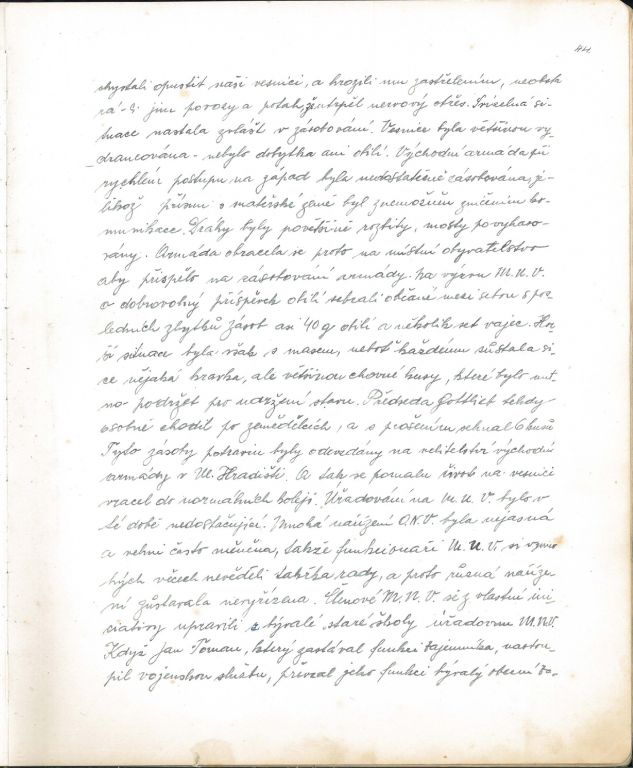 44.
chystali opustit naši vesnici, a hrozili mu zastřelením, neobsta
rá-li jim povozy a potah, utrpěl nervový otřes. Svízelná si
tuace nastala zvlášt v zásobování. Vesnice byla většinou vy
drancována - nebylo dobytka ani obilí. Východní armáda při
rychlém postupu na západ byla nedostatečně zásobována, je
likož přísun s mateřské země byl znemožněn zničením ko-
munikace. Dráhy byly povětšině rozbity, mosty povyhazo-
vány. Armáda obracela se proto na místní obyvatelstvo
aby přispělo na zásobování armády. Na výzvu M.N.V.
o dobrovolný příspěvek obilí sebrali občané mezi sebou s pos
ledních zbytků zásob asi 40 q obilí a několik set vajec. Hor
ší situace byla však s masem, neboť každému zůstala si-
ce nějaká kravka, ale většinou chovné kusy, které bylo nut
no podržet pro udržení stavu. Předseda Gottlieb tehdy
osobně chodil po zemědělcích, a s prošením sehnal 6 kusů
Tyto zásoby potravin byly odevzdány na velitelství východní
armády v Uh. Hradišti. A tak se pomalu život na vesnici
vracel do normálních kolejí. Úřadování na M.N.V. bylo v
té době nedostačující. Mnohá nařízení O.N.V. byla nejasná
a velmi často měněna, takže funkcionáři M.N.V. si v
kých věcech nevěděli takřka rady, a proto různá naříze-
ní zůstávala nevyřízena. Členové M.N.V. si z vlastní ini
ciativy upravili z bývalé staré školy úřadovnu M.N.V.
Když Jan Toman, který zastával funkci tajemníka, nastou
pil vojenskou službu, převzal jeho funkci bývalý obecní ta-